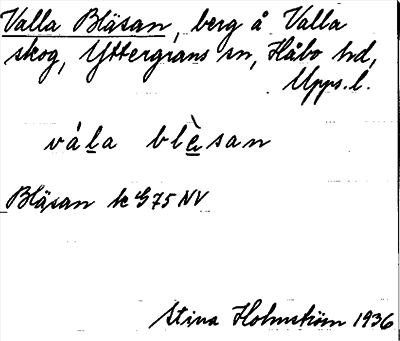 Valla Bläsan, berg å Valla
skog, Yttergrans sn, Håbo hd,
Upps. l.
vála blè̱san
Bläsan k G75 NV
Stina Holmström 1936